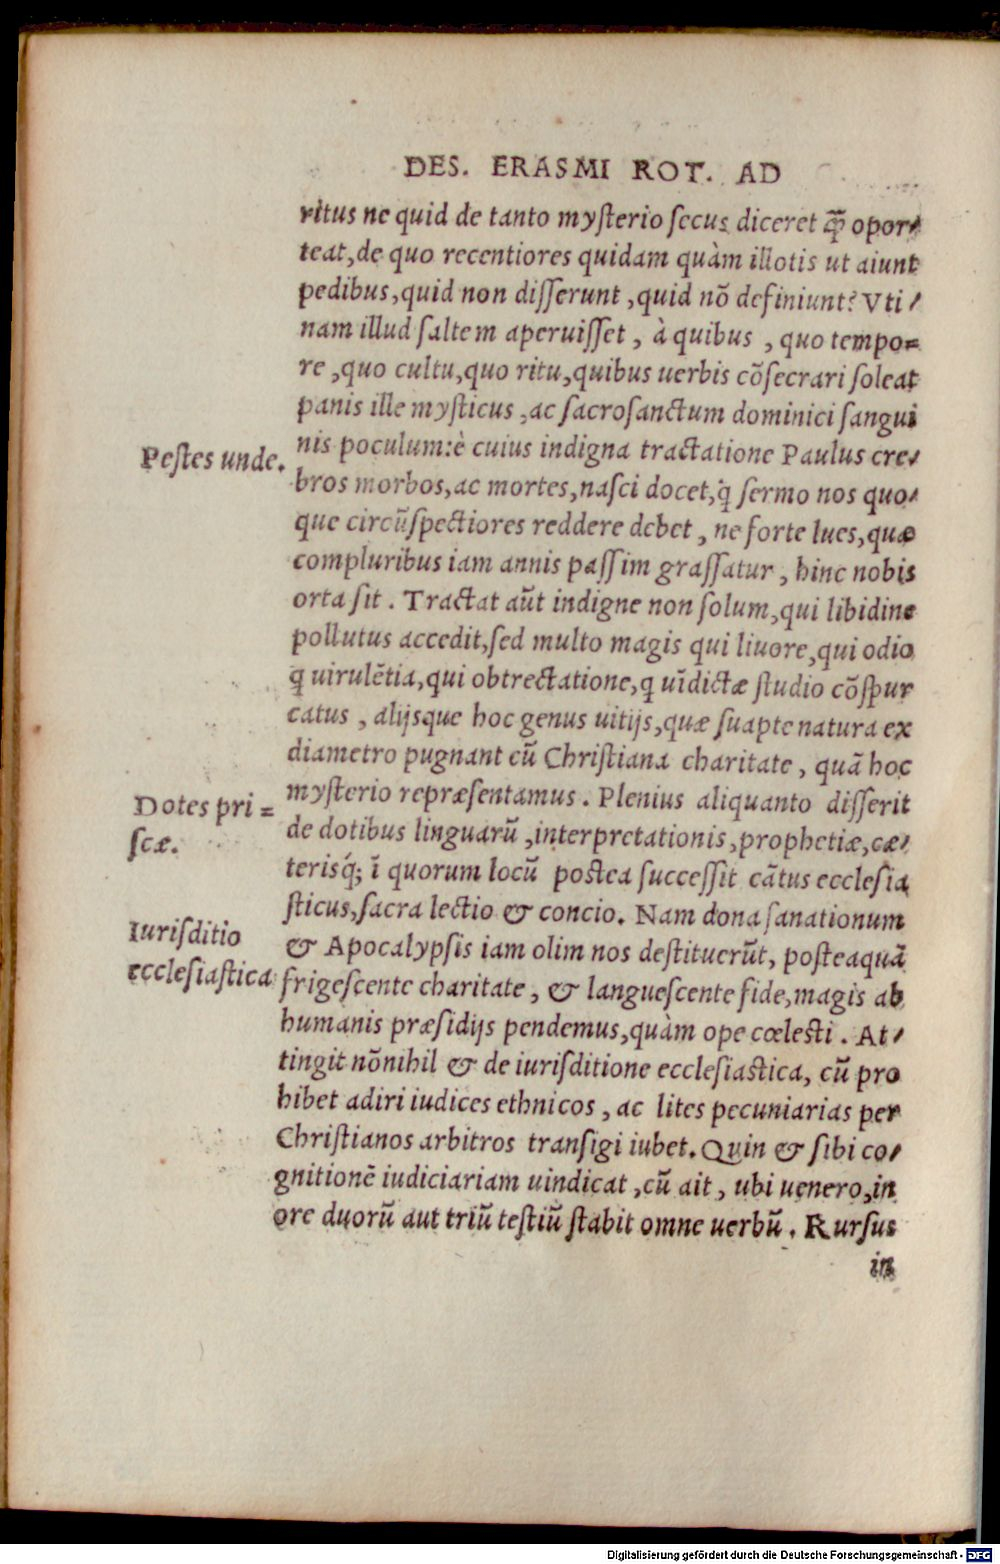 DES. ERASMI ROT. AD
ritus ne quid de tanto myſterio ſecus diceret ꝙ̃ opor⸗
teat, de quo recentiores quidam quàm illotis ut aiunt
pedibus, quid non diſſerunt, quid nõ definiunt? Vti⸗
nam illud ſaltem aperuiſſet, à quibus, quo tempo⸗
re, quo cultu, quo ritu, quibus uerbis cõſecrari ſoleat
panis ille myſticus, ac ſacroſanctum dominici ſangui
nis poculum: è cuius indigna tractatione Paulus cre⸗
Peſtes unde.
bros morbos, ac mortes, naſci docet, q̇ ſermo nos quo⸗
que circũſpectiores reddere debet, ne forte lues, quæ
compluribus iam annis paſſim graſſatur, hinc nobis
orta ſit. Tractat aũt indigne non ſolum, qui libidine
pollutus accedit, ſed multo magis qui liuore, qui odio
q uirulẽtia, qui obtrectatione, q uĩdictæ ſtudio cõſpur
catus, alijsque hoc genus uitijs, quæ ſuapte natura ex
diametro pugnant cũ Chriſtiana charitate, quã hoc
myſterio repræſentamus. Plenius aliquanto diſſerit
Dotes pri⸗
ſcæ.
de dotibus linguarũ, interpretationis, prophetiæ, cæ⸗
terisq́; ĩ quorum locũ poſtea ſucceſſit cãtus eccleſia
ſticus, ſacra lectio & concio. Nam dona ſanationum
Iuriſditio
eccleſiaſtica
& Apocalypſis iam olim nos deſtituerũt, poſteaquã
frigeſcente charitate, & langueſcente fide, magis ab
humanis præſidijs pendemus, quàm ope cœleſti. At⸗
tingit nõnihil & de iuriſditione eccleſiaſtica, cũ pro
hibet adiri iudices ethnicos, ac lites pecuniarias per
Chriſtianos arbitros tranſigi iubet. Quin & ſibi co⸗
gnitionẽ iudiciariam uindicat, cũ ait, ubi uenero, in
ore duorũ aut triũ teſtiũ ſtabit omne uerbũ. Rurſus
in
Digitalisierung gefördert durch die Deutsche Forschungsgemeinschaft - DFG